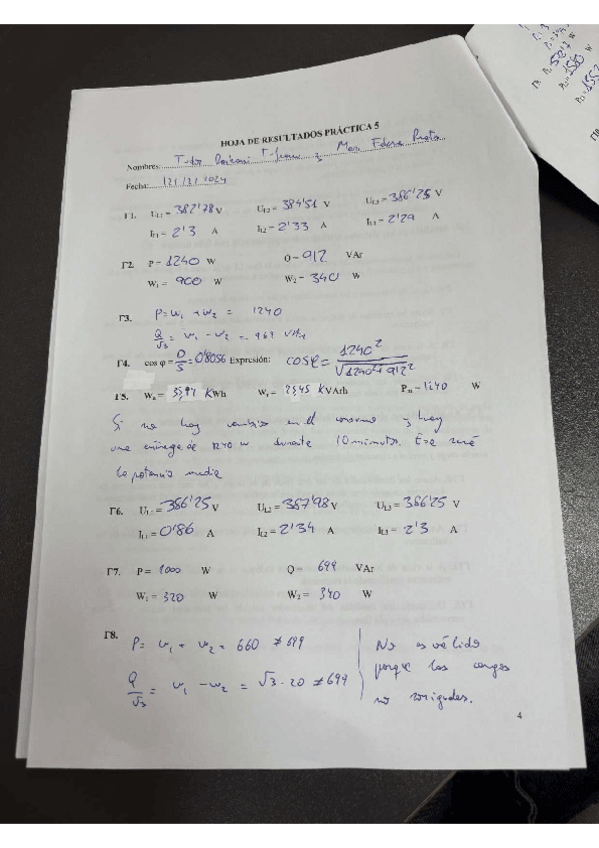 HOJA DE RESULTADOS PRÁCTICA 5
Nombres:
Fecha:
Γ1. U_L1 = 382'78 V U_L2 = 384'51 V U_L3 = 386'25 V
I_L1 = 2'3 A I_L2 = 2'33 A I_L3 = 2'29 A
Γ2. P = 1240 W Q = 912 VAr
W₁ = 900 W W₂ = 340 W
Γ3. P = W₁ + W₂ = 1240
Q/√3 = W₁ - W₂ =
Γ4. cos φ = = 0'8056 Expresión: cos φ = 1240² / √1240² + 912²
Γ5. Wa = KWh Wr = KVArh Pm = 1240 W
Si no hay cambio en el consumo y hay
una entrega de 1240 W durante 10 minutos. Esa será
la potencia media
Γ6. U_L1 = 386'25 V U_L2 = 387'98 V U_L3 = 386'25 V
I_L1 = 0'86 A I_L2 = 2'34 A I_L3 = 2'3 A
Γ7. P = 1000 W Q = 699 VAr
W₁ = 320 W W₂ = 340 W
Γ8. P = W₁ + W₂ = 660 ≠ 699
Q/√3 = W₁ - W₂ = √3 · 20 ≠ 699
No es válido
porque las cargas
no
4